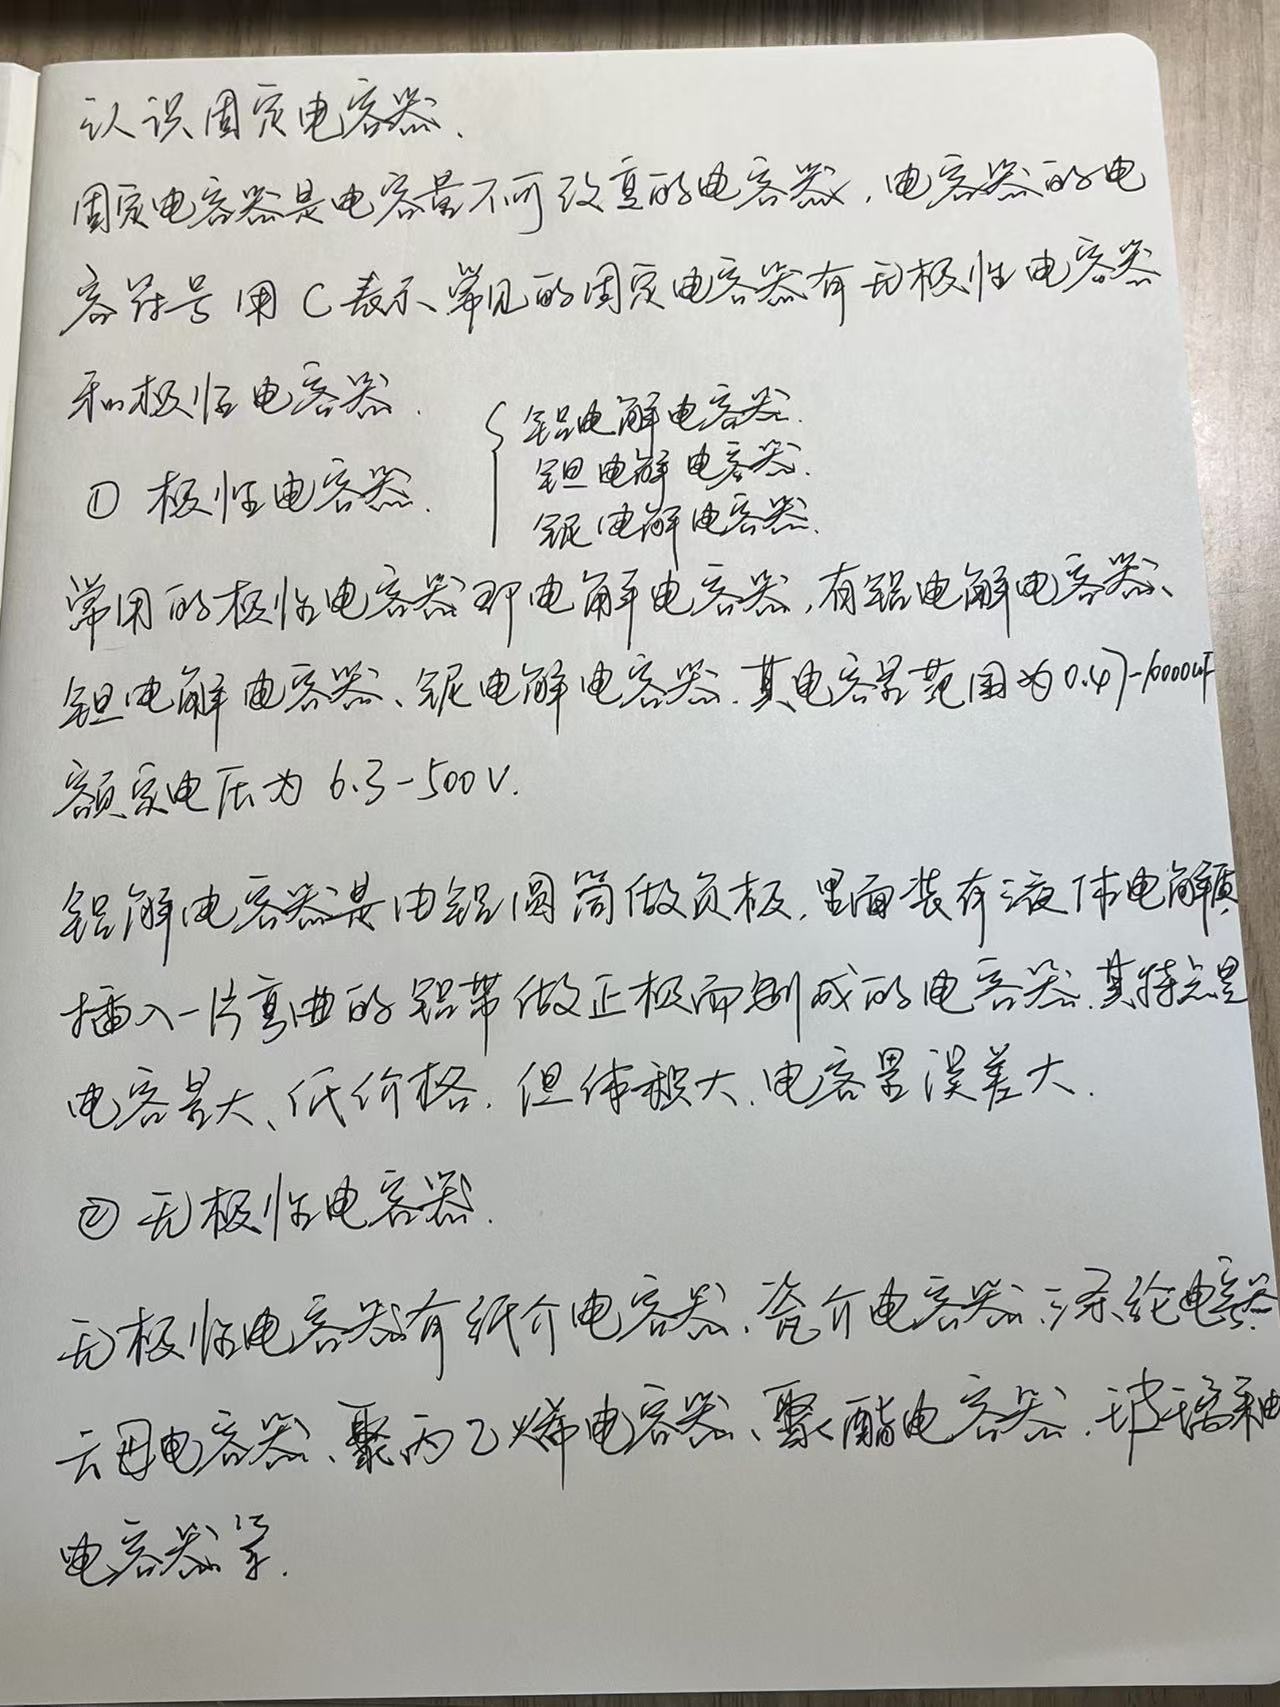 认识固定电容器.
固定电容器是电容量不可改变的电容器,电容器的电
容符号用C表示,常见的固定电容器有无极性电容器
和极性电容器.
① 极性电容器.
铝电解电容器.
钽电解电容器.
铌电解电容器.
常用的极性电容器即电解电容器,有铝电解电容器、
钽电解电容器、铌电解电容器.其电容量范围为0.47-10000uF
额定电压为6.3-500V.
铝解电容器是由铝圆筒做负极,里面装有液体电解质
插入一片弯曲的铝带做正极而制成的电容器.其特点是
电容量大、低价格.但体积大、电容量误差大.
② 无极性电容器.
无极性电容器有纸介电容器、瓷介电容器、涤纶电容器
云母电容器、聚丙乙烯电容器、聚酯电容器、玻璃釉
电容器等.